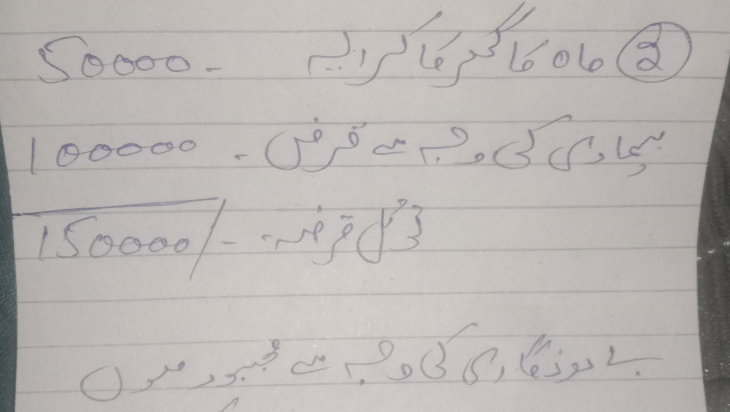 ② ماہ کا گھر کا کرایہ 50000-
بیماری کی وجہ سے قرض - 100000
ٹوٹل قرضہ -- 150000/
بے روزگاری کی وجہ سے مجبور ہوں